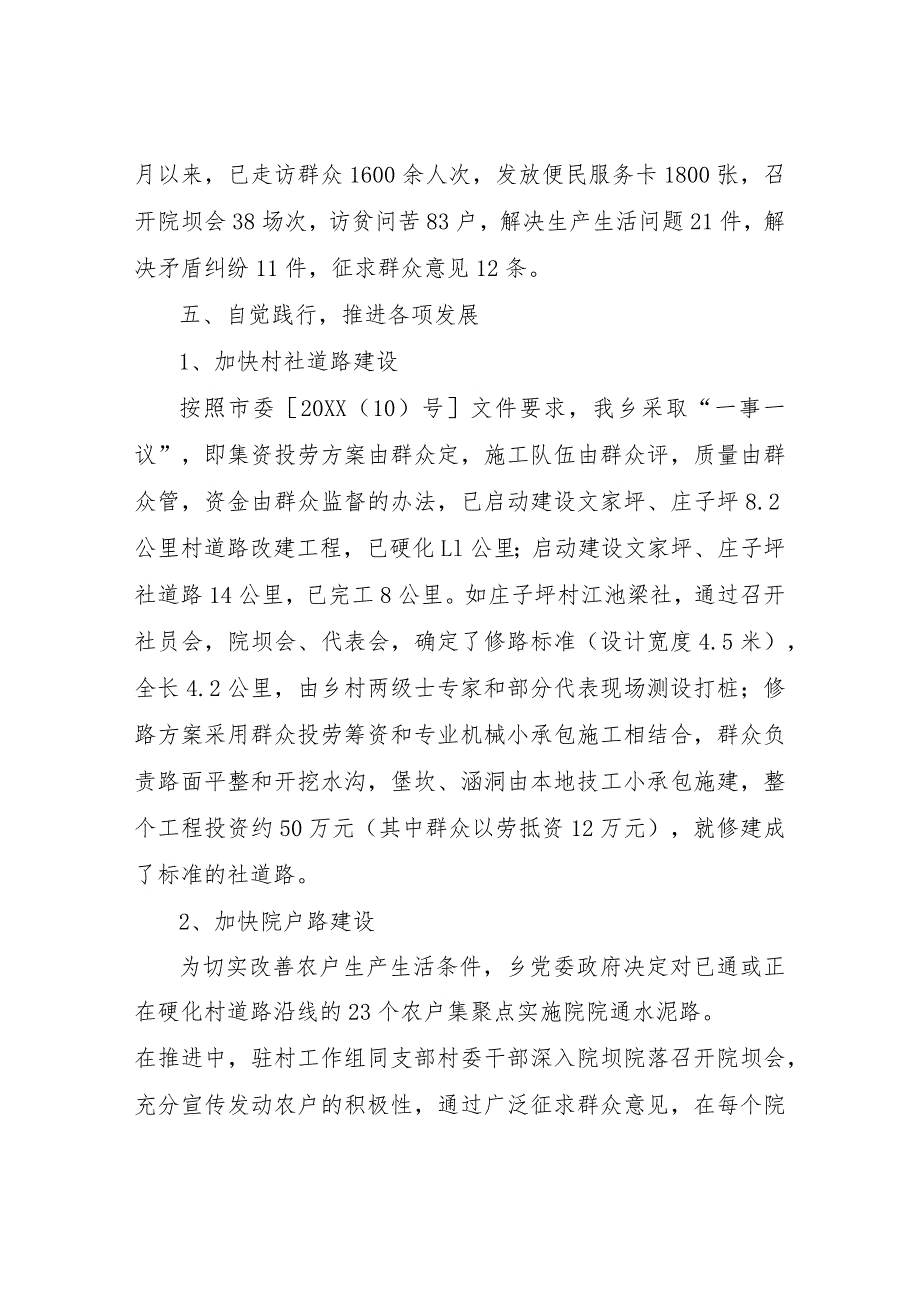 月以来，已走访群众 1600 余人次，发放便民服务卡 1800 张，召
开院坝会 38 场次，访贫问苦 83 户，解决生产生活问题 21 件，解
决矛盾纠纷 11 件，征求群众意见 12 条。
五、自觉践行，推进各项发展
1、加快村社道路建设
按照市委［20XX（10）号］文件要求，我乡采取“一事一
议”，即集资投劳方案由群众定，施工队伍由群众评，质量由群
众管，资金由群众监督的办法，已启动建设文家坪、庄子坪 8.2
公里村道路改建工程，已硬化 Ll 公里；启动建设文家坪、庄子坪
社道路 14 公里，已完工 8 公里。如庄子坪村江池梁社，通过召开
社员会，院坝会、代表会，确定了修路标准（设计宽度 4.5 米），
全长 4.2 公里，由乡村两级士专家和部分代表现场测设打桩；修
路方案采用群众投劳筹资和专业机械小承包施工相结合，群众负
责路面平整和开挖水沟，堡坎、涵洞由本地技工小承包施建，整
个工程投资约 50 万元（其中群众以劳抵资 12 万元），就修建成
了标准的社道路。
2、加快院户路建设
为切实改善农户生产生活条件，乡党委政府决定对已通或正
在硬化村道路沿线的 23 个农户集聚点实施院院通水泥路。
在推进中，驻村工作组同支部村委干部深入院坝院落召开院坝会，
充分宣传发动农户的积极性，通过广泛征求群众意见，在每个院